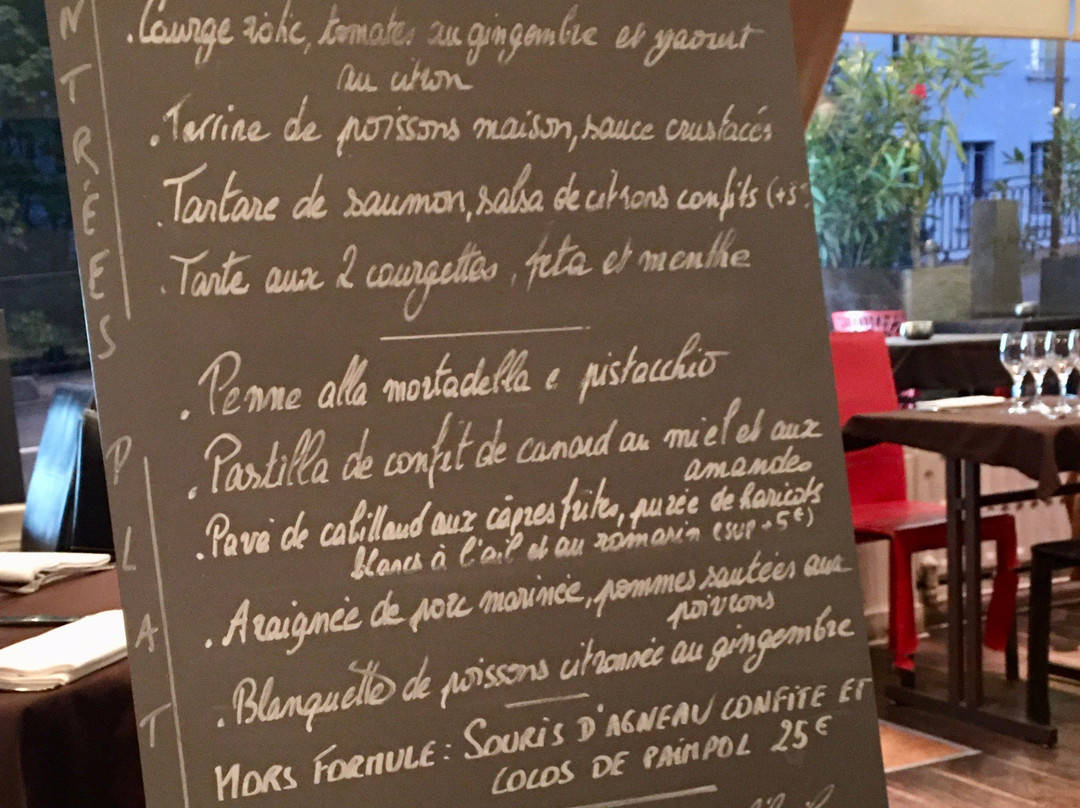 NTRÉES
. Courge rôtie, tomates au gingembre et yaourt
au citron
. Terrine de poissons maison, sauce crustacés
. Tartare de saumon, salsa de citrons confits (+5
. Tarte aux 2 courgettes, feta et menthe
PLAT
. Penne alla mortadella e pistacchio
. Pastilla de confit de canard au miel et aux
amandes
. Pavé de cabillaud aux câpres frites, purée de haricots
blancs à l'ail et au romarin (sup +5€)
. Araignée de porc marinée, pommes sautées aux
poivrons
. Blanquette de poissons citronnée au gingembre
HORS FORMULE: SOURIS D'AGNEAU CONFITE ET
COCOS DE PAIMPOL 25€